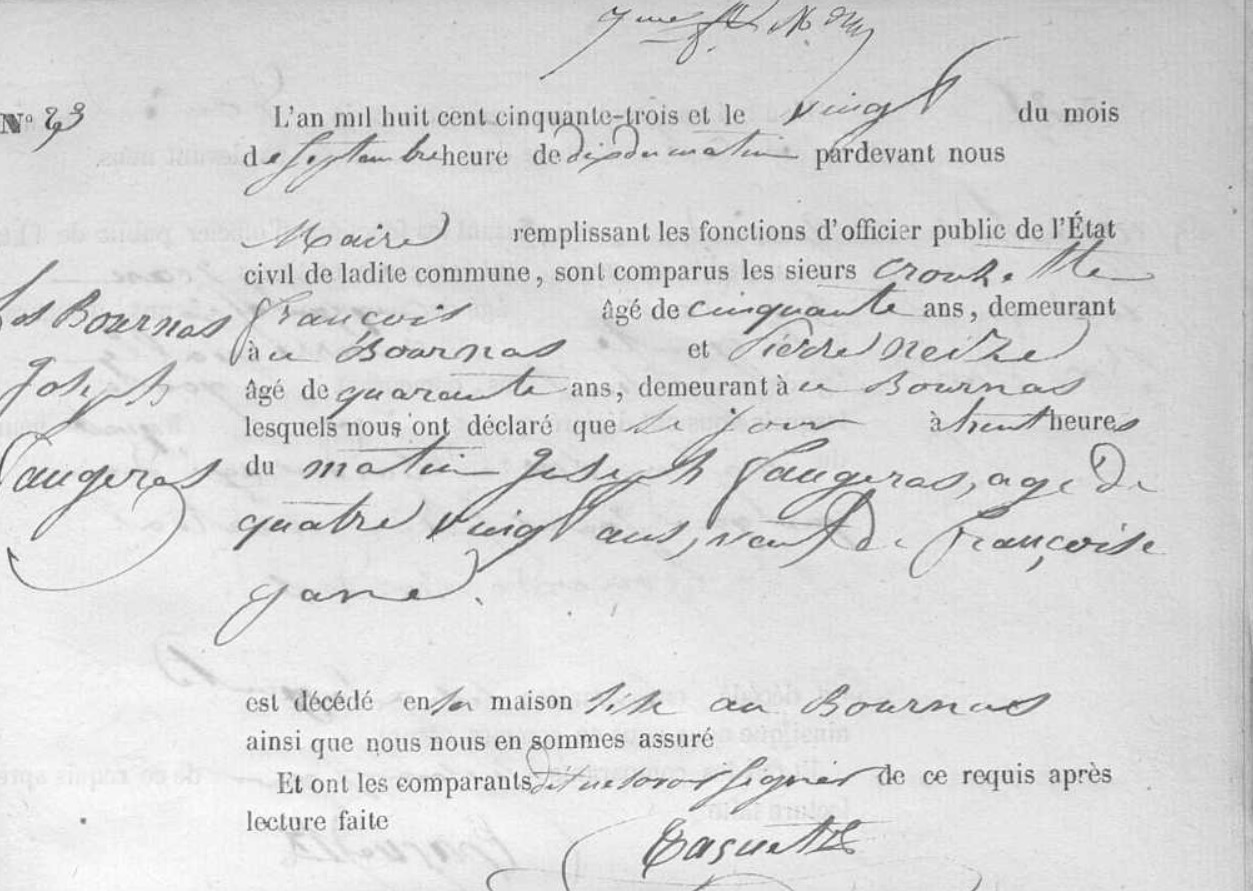 N° 23
L'an mil huit cent cinquante-trois et le vingt du mois
de septembre heure de dix du matin pardevant nous
Maire remplissant les fonctions d'officier public de l'État
civil de ladite commune, sont comparus les sieurs
François âgé de cinquante ans, demeurant
à au Bournas et Pierre
âgé de quarante ans, demeurant à au Bournas
lesquels nous ont déclaré que ce jour à huit heures
du matin Joseph Faugeras, age de
quatre vingt ans, veuf de Françoise
gane.
est décédé en sa maison sise au Bournas
ainsi que nous nous en sommes assuré
Et ont les comparants dit ne savoir signer de ce requis après
lecture faite
Bournas
Joseph
Faugeras